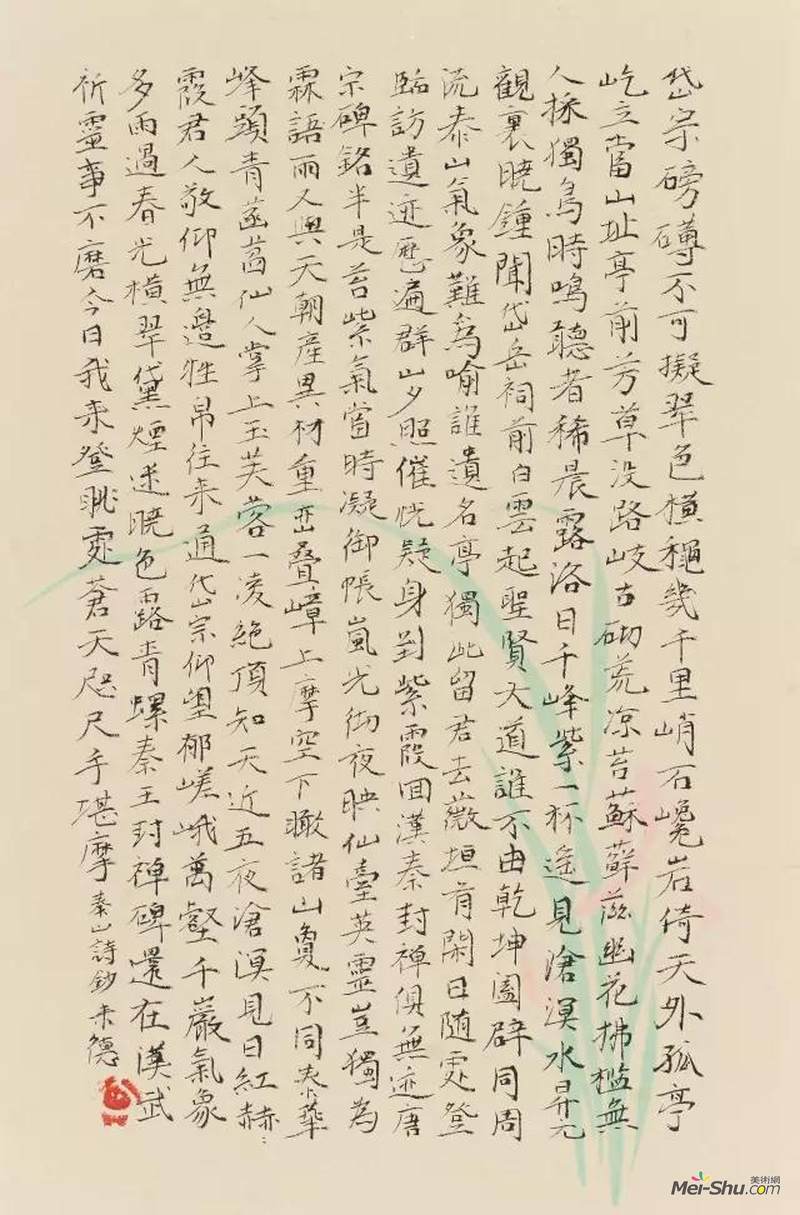 岱宗磅礴不可擬翠色橫種幾千里峭石巉岩倚天外孤亭
屹立當山址亭前芳草没路岐古砌荒凉苔蘇蘚滋幽花拂檻無
人採獨鳥時鳴聽者稀晨露洛日千峰紫一杯遙見滄溟水昇元
觀裏曉鍾聞岱岳祠前白雲起聖賢大道誰不由乾坤闔辟同周
流泰山氣象難為喻誰遺名亭獨此留君去薇垣有閑日随處登
臨訪遺迹歷遍群山夕照催恍疑身到紫霞回漢秦封禅俱無迹唐
宗碑銘半是苔紫氣當時凝御帳嵐光彻夜映仙臺英靈豈獨為
霖語雨人與天朝產異材重巒叠嶂上摩空下瞰諸山敻不同泰華
峰頭青菡萏仙人掌上玉芙蓉一凌絶頂知天近五夜滄溟見日紅赫
霞君人敬仰無邊牲帛往来通岱宗仰望郁嵯峨萬壑千巖氣象
多雨過春光橫翠黛煙迷曉色露青螺秦王封禅碑還在漢武
祈靈事不磨今日我来登眺處蒼天咫尺手堪摩
泰山詩鈔
美術網
Mei-Shu.com